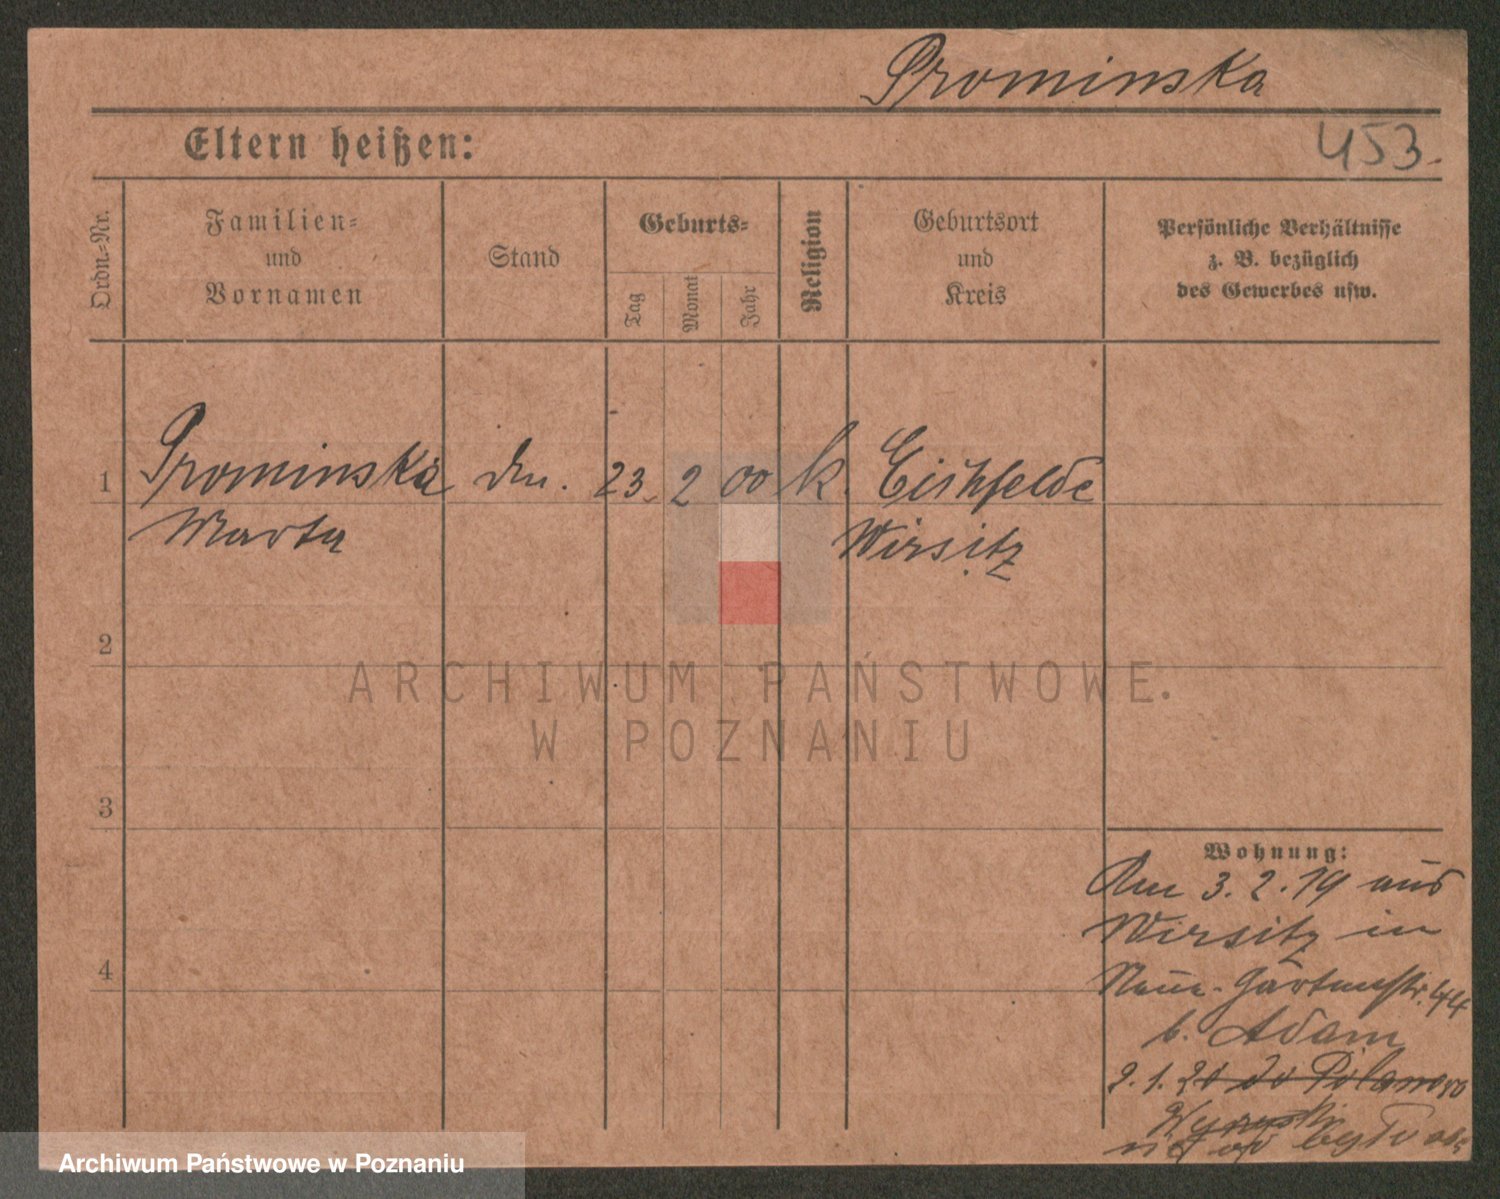 Prominska
Eltern heißen:
453.
Ordn.=Nr.
Familien=
und
Vornamen
Stand
Geburts=
Tag
Monat
Jahr
Religion
Geburtsort
und
Kreis
Persönliche Verhältnisse
z. B. bezüglich
des Gewerbes usw.
1 Prominska 23. 2 00 k. Eichfelde
Marta Wirsitz
2
3
4
Wohnung:
Am 3.2.19 aus
Wirsitz in
Neue-Gartenstr. 44
b. Adam
2.1.21 do
ARCHIWUM PAŃSTWOWE
W POZNANIU
Archiwum Państwowe w Poznaniu